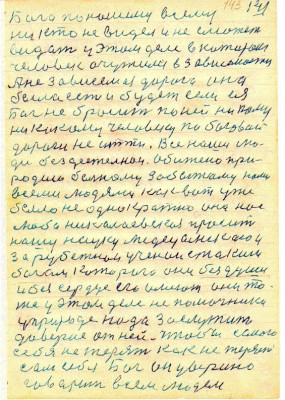 143 141
Бога по нашему всему
никто не видел и не сможет
видать у этом деле в котором
человек очутился в зависимости
А не зависемая дорога она
была есть и будет если я
Бог не бросит по ней никому
никакому человеку по боговой
дороги не итти. Все наши лю-
ди бездетельном. обижено при-
родою больному забытому нами
всеми людями как вот уже
было не однократно она нас
люба николаевская просит
нашу науку медецинскою
зарубежном ученом с таким
богом которого они без души
и без сердце его имеют они то-
же у этом деле не помочники
у природе надо заслужить
доверие от ней. чтобы самого
себя не терять как не теряет
сам себя Бог он уверино
говорит всем людем